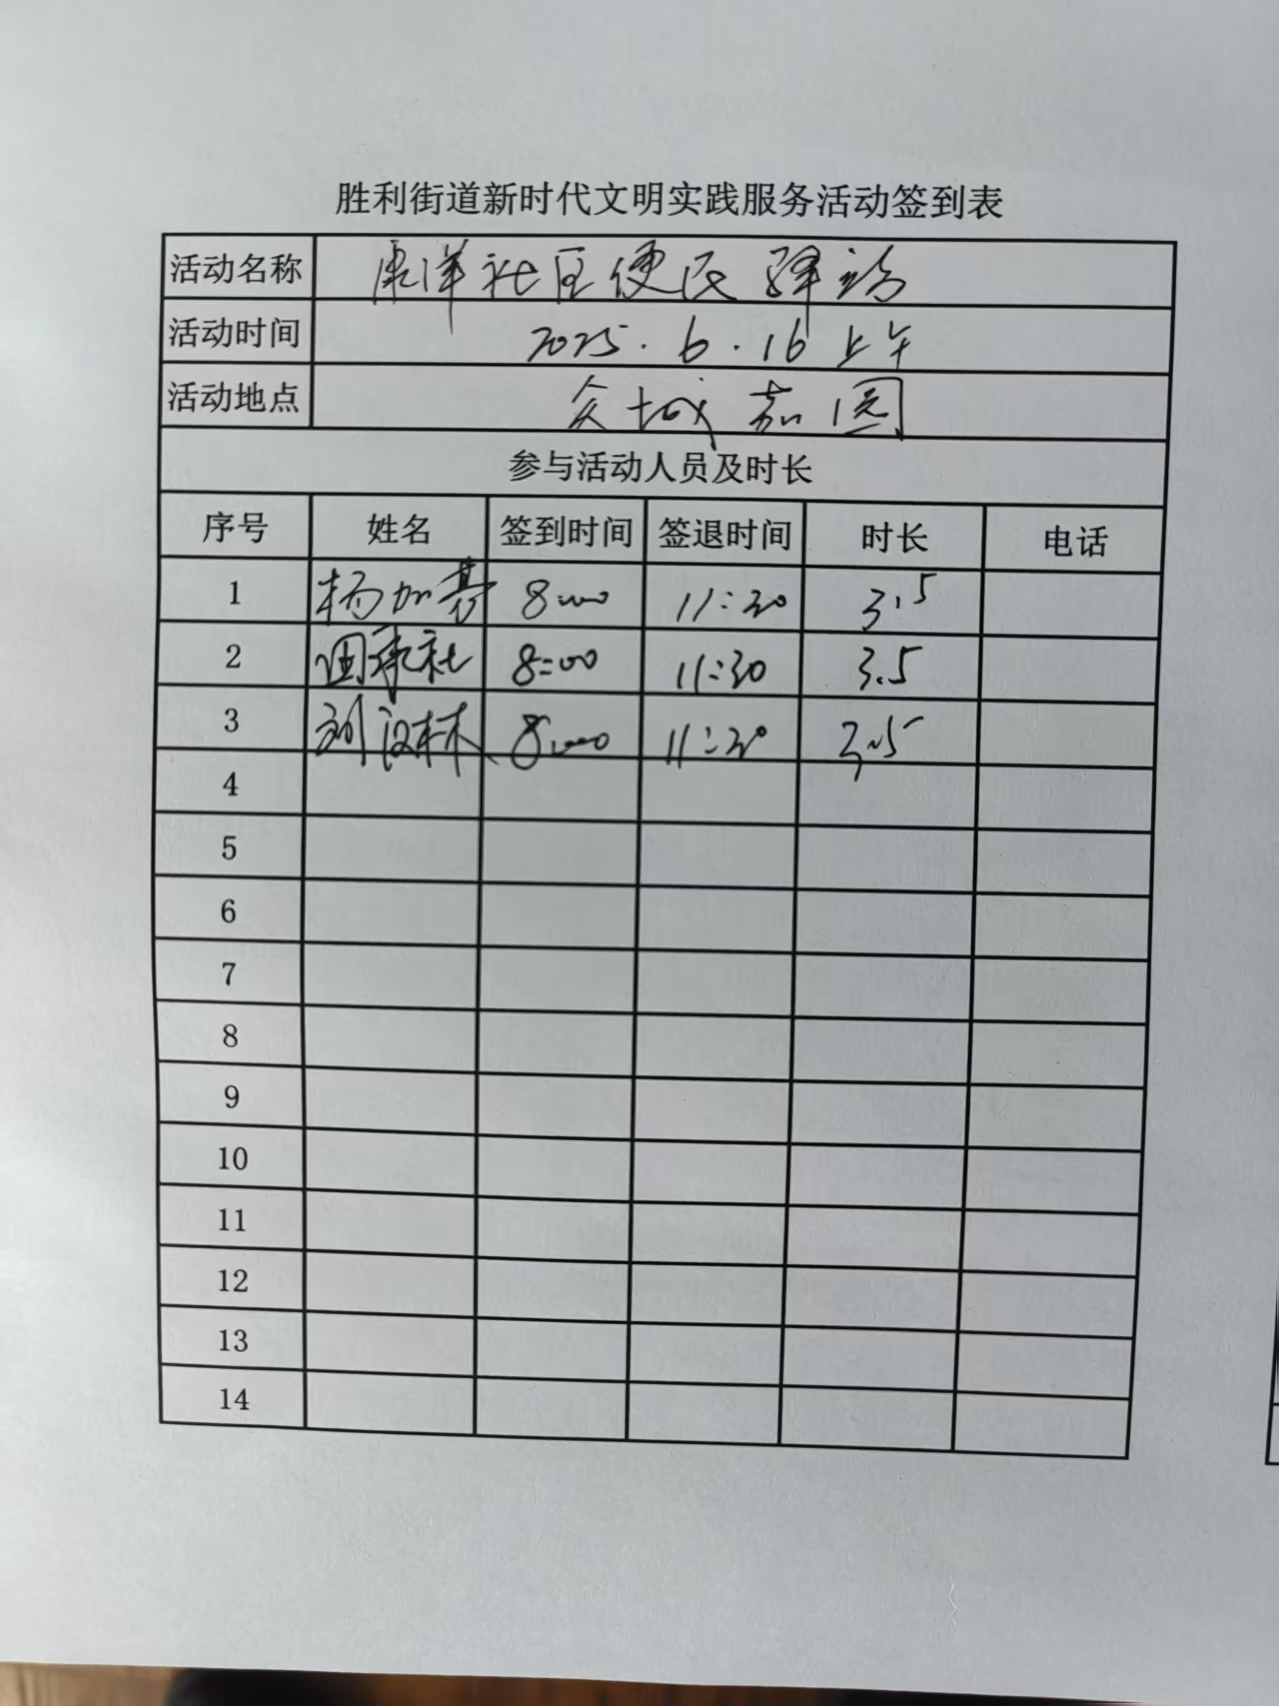 胜利街道新时代文明实践服务活动签到表
活动名称 康洋社区便民驿站
活动时间 2025.6.16上午
活动地点 众城嘉园
参与活动人员及时长
序号 姓名 签到时间 签退时间 时长 电话
1 杨加基 8:00 11:30 3.5
2 田承社 8:00 11:30 3.5
3 刘汉林 8:00 11:30 3.5
4
5
6
7
8
9
10
11
12
13
14